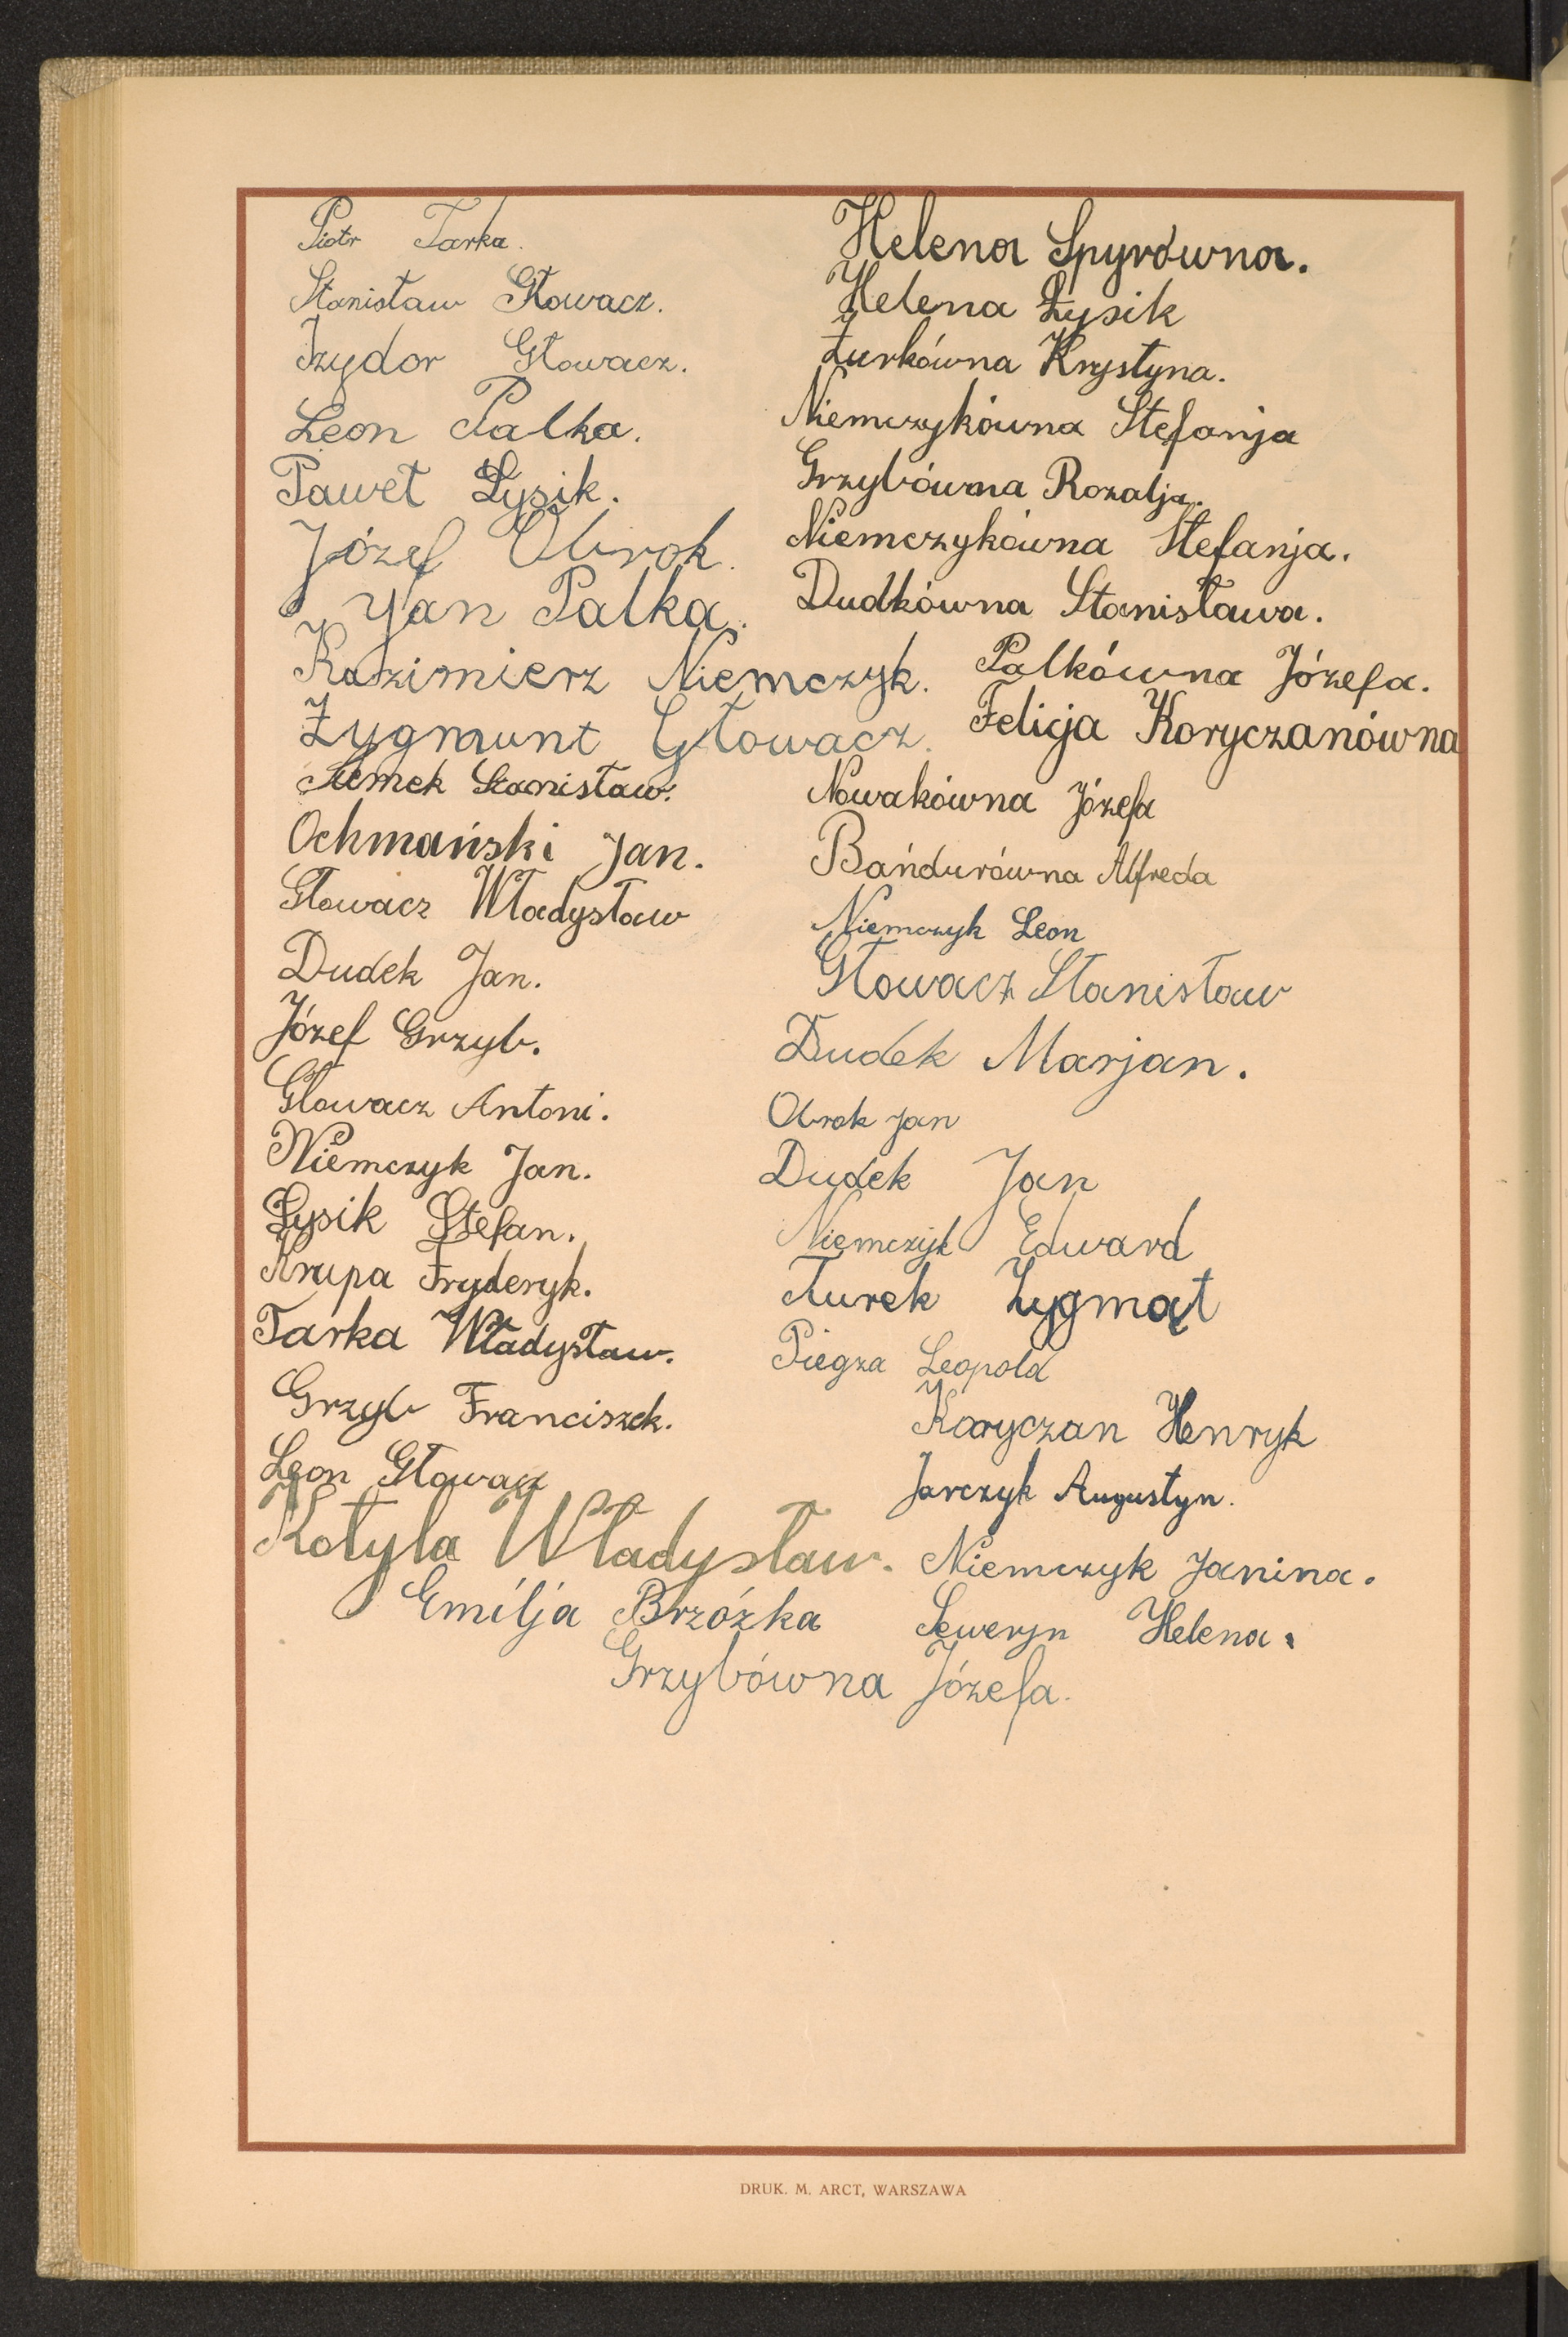 Piotr Tarka.
Stanisław Głowacz.
Izydor Głowacz.
Leon Palka.
Paweł Łysik.
Józef Obrok.
Jan Palka.
Kazimierz Niemczyk.
Zygmunt Głowacz.
Stanisław.
Ochmański Jan.
Głowacz Władysław
Dudek Jan.
Józef Grzyb.
Głowacz Antoni.
Niemczyk Jan.
Łysik Stefan.
Krupa Fryderyk.
Tarka Władysław.
Grzyb Franciszek.
Leon Głowacz
Kotyla Władysław.
Emilja Brzózka
Helena Spyrówna.
Helena Łysik
Żurkówna Krystyna.
Niemczykówna Stefanja
Grzybówna Rozalja.
Niemczykówna Stefanja.
Dudkówna Stanisława.
Palkówna Józefa.
Felicja Koryczanówna
Nowakówna Józefa
Bańdurówna Alfreda
Niemczyk Leon
Głowacz Stanisław
Dudek Marjan.
Obrok Jan
Dudek Jan
Niemczyk Edward
Turek Zygmąt
Piegza Leopold
Koryczan Henryk
Jarczyk Augustyn.
Niemczyk Janina.
Seweryn Helena.
Grzybówna Józefa.
DRUK. M. ARCT, WARSZAWA